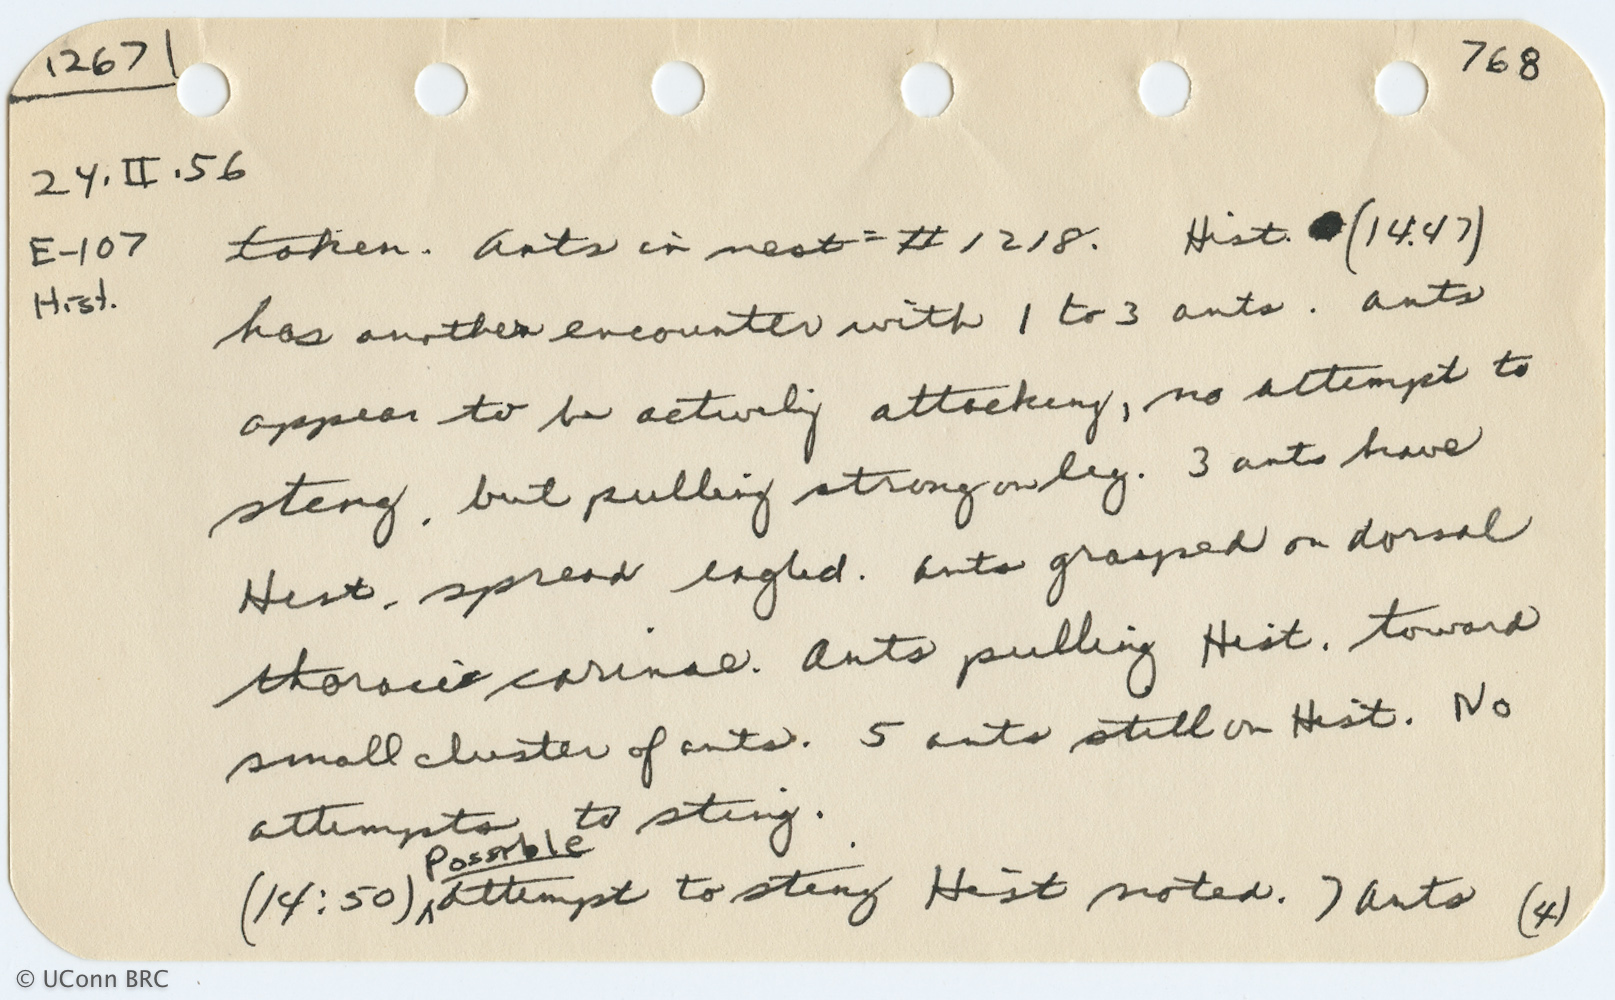 1267
768
24.II.56
E-107
Hist.
taken. Ants in nest = # 1218. Hist. (14.47)
has another encounter with 1 to 3 ants. Ants
appear to be actively attacking, no attempt to
sting, but pulling strong on leg. 3 ants have
Hist. spread eagled. Ants grasped on dorsal
thoracic carinae. Ants pulling Hist. toward
small cluster of ants. 5 ants still on Hist. No
attempts to sting.
Possible
(14:50) ^ attempt to sting Hist noted. 7 Ants (4)
© UConn BRC